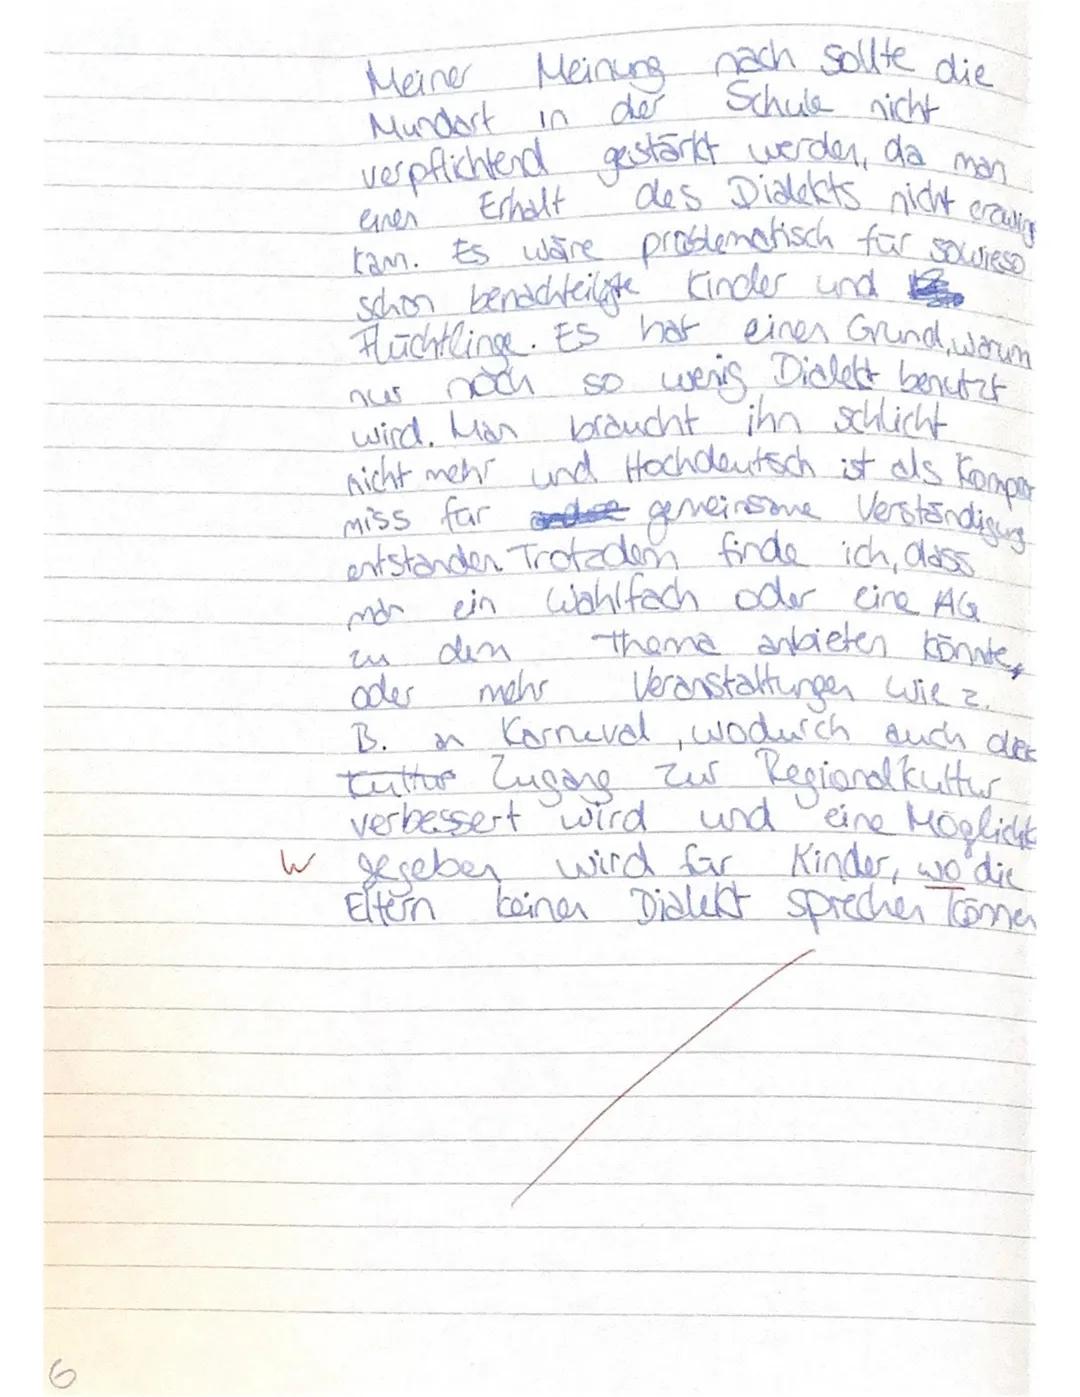 Meiner Meinung nach sollte die
Mundart in der Schule nicht
verpflichtend gestärkt werden, da man
einen Erhalt des Dialekts nicht erzwing
kann. Es wäre problematisch für sowieso
schon benachteiligte Kinder und
Flüchtlinge. Es hat einen Grund, warum
nur noch so wenig Dialekt benutzt
wird. Man braucht ihn schlicht
nicht mehr und Hochdeutsch ist als Kompro
miss für gemeinsame Verständigung
entstanden. Trotzdem finde ich, dass
man ein Wahlfach oder eine AG
zu dem Thema anbieten könnte,
oder mehr Veranstaltungen wie z.
B. an Karneval, wodurch auch der
Kultur Zugang zur Regionalkultur
verbessert wird und eine Möglichk
W gegeben wird für Kinder, wo die
Eltern keinen Dialekt sprechen können
6